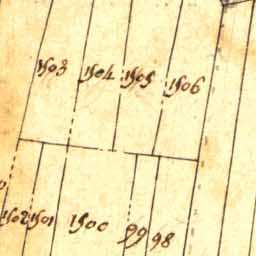 1503 1504 1505 1506
1502 1501 1500 99 98